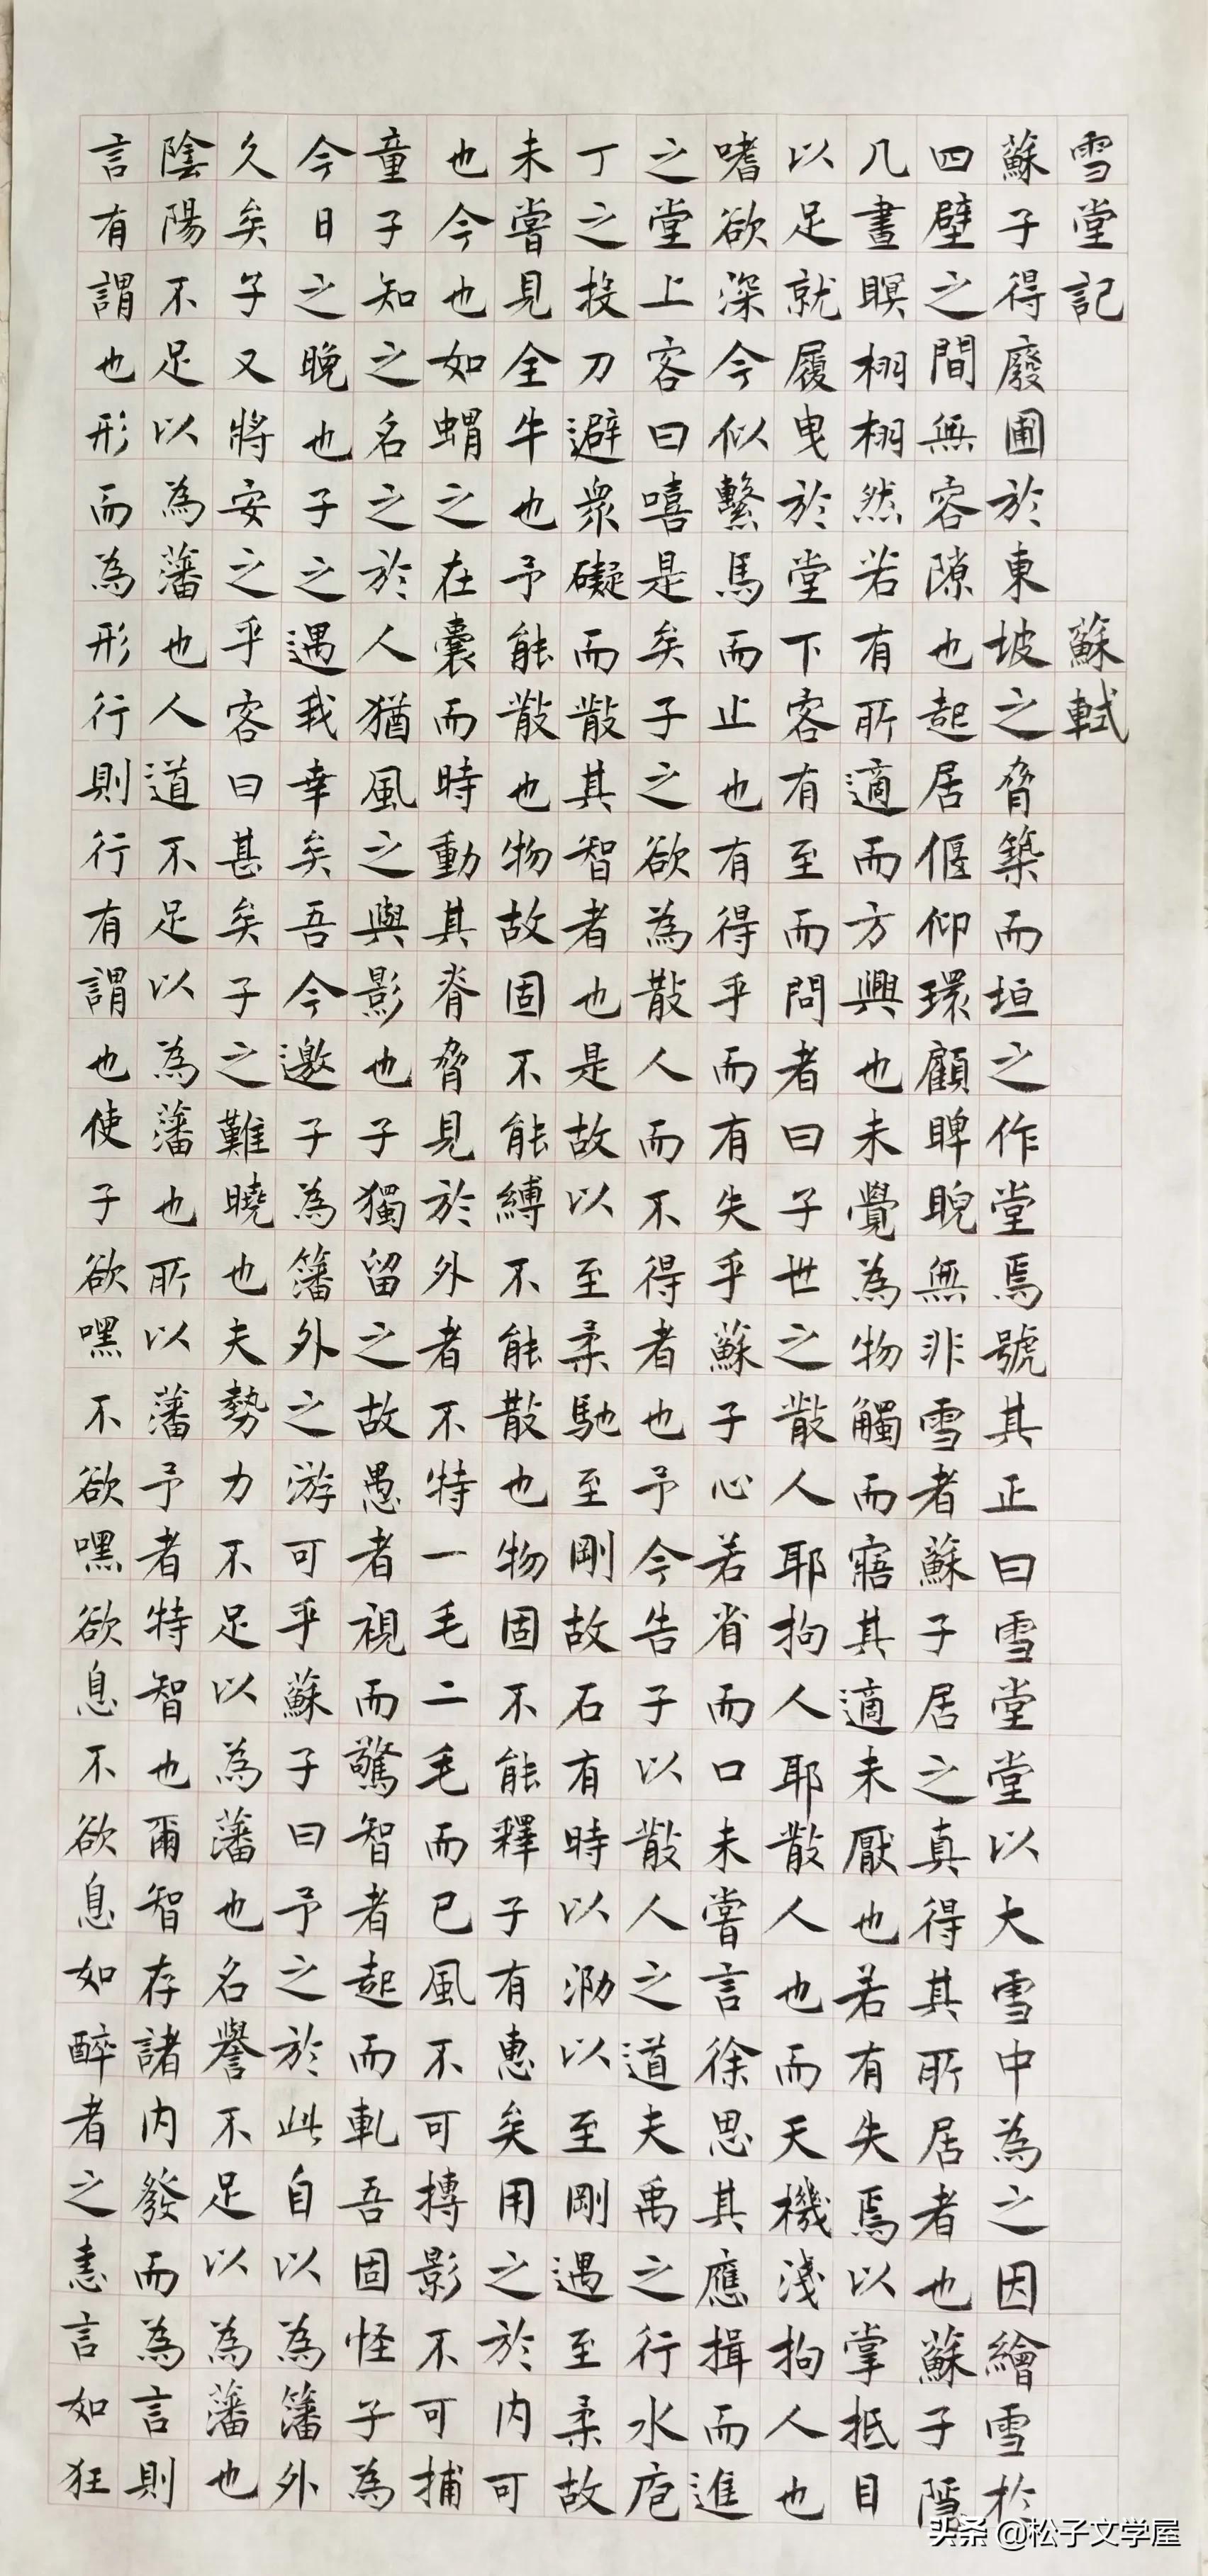 雪堂記 蘇軾
蘇子得廢圃於東坡之脅築而垣之作堂焉號其正曰雪堂堂以大雪中為之因繪雪於
四壁之間無容隙也起居偃仰環顧睥睨無非雪者蘇子居之真得其所居者也蘇子隱
几晝瞑栩栩然若有所適而方興也未覺為物觸而寤其適未厭也若有失焉以掌抵目
以足就履曳於堂下客有至而問者曰子世之散人耶拘人耶散人也而天機淺拘人也
嗜欲深今似繫馬而止也有得乎而有失乎蘇子心若省而口未嘗言徐思其應揖而進
之堂上客曰嘻是矣子之欲為散人而不得者也予今告子以散人之道夫禹之行水庖
丁之投刀避眾礙而散其智者也是故以至柔馳至剛故石有時以泐以至剛遇至柔故
未嘗見全牛也予能散也物故固不能縛不能散也物固不能釋子有惠矣用之於內可
也今也如蝟之在囊而時動其脊脅見於外者不特一毛二毛而已風不可摶影不可捕
童子知之名之於人猶風之與影也子獨留之故愚者視而驚智者起而軋吾固怪子為
今日之晚也子之遇我幸矣吾今邀子為籓外之游可乎蘇子曰予之於此自以為籓外
久矣子又將安之乎客曰甚矣子之難曉也夫勢力不足以為藩也名譽不足以為藩也
陰陽不足以為藩也人道不足以為藩也所以藩予者特智也爾智存諸內發而為言則
言有謂也形而為形行則行有謂也使子欲嘿不欲嘿欲息不欲息如醉者之恚言如狂
头条 @松子文学屋